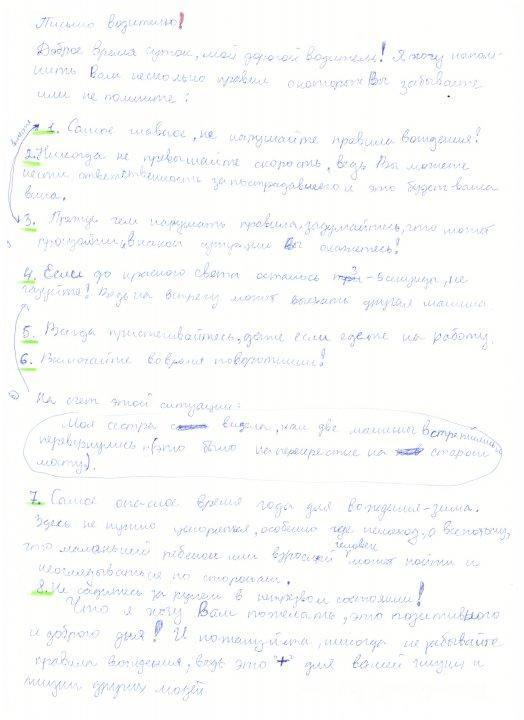 Письмо водителю!
Доброе время суток, мой дорогой водитель! Я хочу напом-
нить Вам несколько правил о которых Вы забываете
или не помните:
1. Самое главное, не нарушайте правила вождения!
2. Никогда не превышайте скорость, ведь Вы можете
нести ответственность за пострадавшего и это будет ваша
вина.
3. Прежде чем нарушать правила, задумайтесь, что может
произойти, в какой ситуации Вы окажетесь!
4. Если до красного света осталось 3-5 секунды, не
газуйте! Ведь на встречу может выехать другая машина.
5. Всегда пристегивайтесь, даже если едете на работу.
6. Включайте во время поворотники!
На счет этой ситуации:
Моя сестра видела, как две машины встретились и
перевернулись (это было на перекрестке на старом
мосту).
7. Самое опасное время года для вождения-зима.
Здесь не нужно ускоряться, особенно где пешеход, а вспомнить,
что маленький ребенок или взрослый человек может пойти и
не оглядываться по сторонам.
8. Не садитесь за рулем в нетрезвом состоянии!
Что я хочу Вам пожелать, это позитивного
и доброго дня! И пожалуйста, никогда не забывайте
правила вождения, ведь это "+" для вашей жизни и
жизни других людей